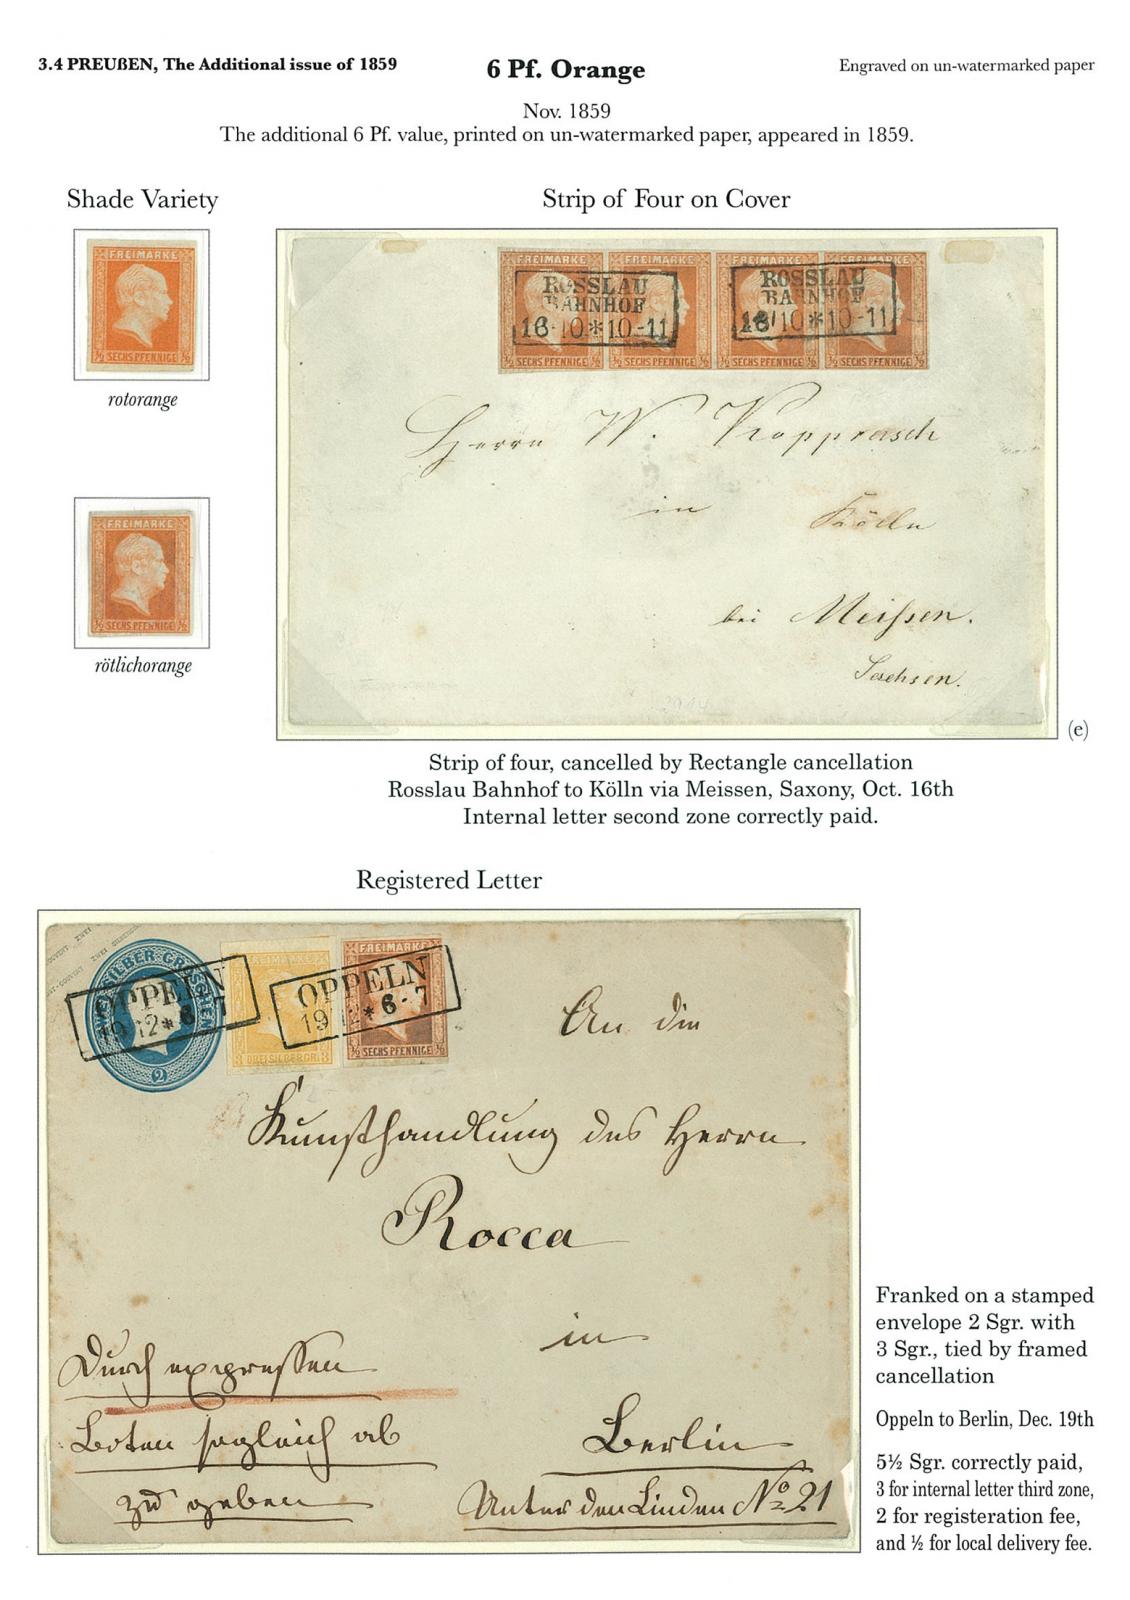 3.4 PREUßEN, The Additional issue of 1859
6 Pf. Orange
Engraved on un-watermarked paper
Nov. 1859
The additional 6 Pf. value, printed on un-watermarked paper, appeared in 1859.
Shade Variety
FREIMARKE
½ SECHS PFENNIGE ½
rotorange
FREIMARKE
½ SECHS PFENNIGE ½
rötlichorange
Strip of Four on Cover
FREIMARKE FREIMARKE FREIMARKE FREIMARKE
ROSSLAU ROSSLAU
BAHNHOF BAHNHOF
16 10 * 10-11 16 10 * 10-11
½ SECHS PFENNIGE ½ ½ SECHS PFENNIGE ½ ½ SECHS PFENNIGE ½ ½ SECHS PFENNIGE ½
Herrn W. Kopprasch
in Kölln
bei Meißen.
Sachsen.
(e)
Strip of four, cancelled by Rectangle cancellation
Rosslau Bahnhof to Kölln via Meissen, Saxony, Oct. 16th
Internal letter second zone correctly paid.
Registered Letter
SILBER GROSCHEN
2
FREIMARKE
3 DREI SILBERGR. 3
FREIMARKE
½ SECHS PFENNIGE ½
OPPELN
19 12 * 6-7
OPPELN
19 12 * 6-7
An die
Kunsthandlung des Herrn
Rocca
in
Berlin
Unter den Linden No 21
Durch expressen
Boten sogleich ab
zu geben
Franked on a stamped
envelope 2 Sgr. with
3 Sgr., tied by framed
cancellation
Oppeln to Berlin, Dec. 19th
5½ Sgr. correctly paid,
3 for internal letter third zone,
2 for registeration fee,
and ½ for local delivery fee.